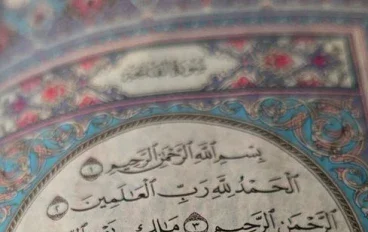 سورة الفاتحة
بِسْمِ اللَّهِ الرَّحْمَٰنِ الرَّحِيمِ ١
الْحَمْدُ لِلَّهِ رَبِّ الْعَالَمِينَ ٢
الرَّحْمَٰنِ الرَّحِيمِ ٣ مَالِكِ